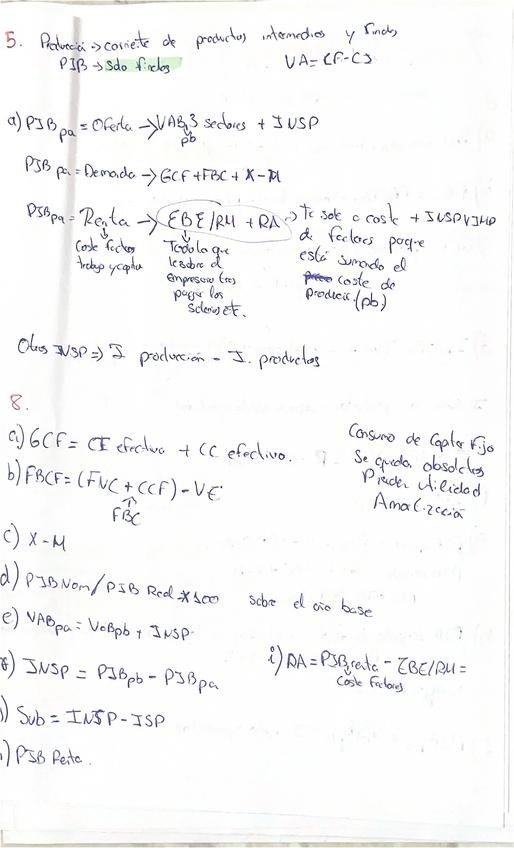 5. Producción → corriente de productos intermedios y finales
PIB → solo finales VA = CF - CI
a) PIB pa = Oferta → VAB pb 3 sectores + INSP
PIB pa = Demanda → GCF + FBC + X - M
PIB pa = Renta → EBE/RM + RA → Te sale a coste + INSPVIMP
de factores porque
está sumando el
coste de
producir (pb)
Coste factores
trabajo y capital
Todo lo que
le sobra al
empresario tras
pagar los
salarios etc.
Otros INSP ⇒ I producción - I. productos
8.
a) GCF = CI efectivo + CC efectivo.
b) FBCF = (FNC + CCF) - VE
FBC
Consumo de Capital Fijo
Se quedan obsoletos
Pierden utilidad
Amortización
c) X - M
d) PIB Nom / PIB Real * 100 sobre el año base
e) VAB pa = VAB pb + INSP
INSP = PIB pb - PIB pa
i) RA = PIB renta - EBE/RM =
coste factores
) Sub = INSP - ISP
) PIB Renta.